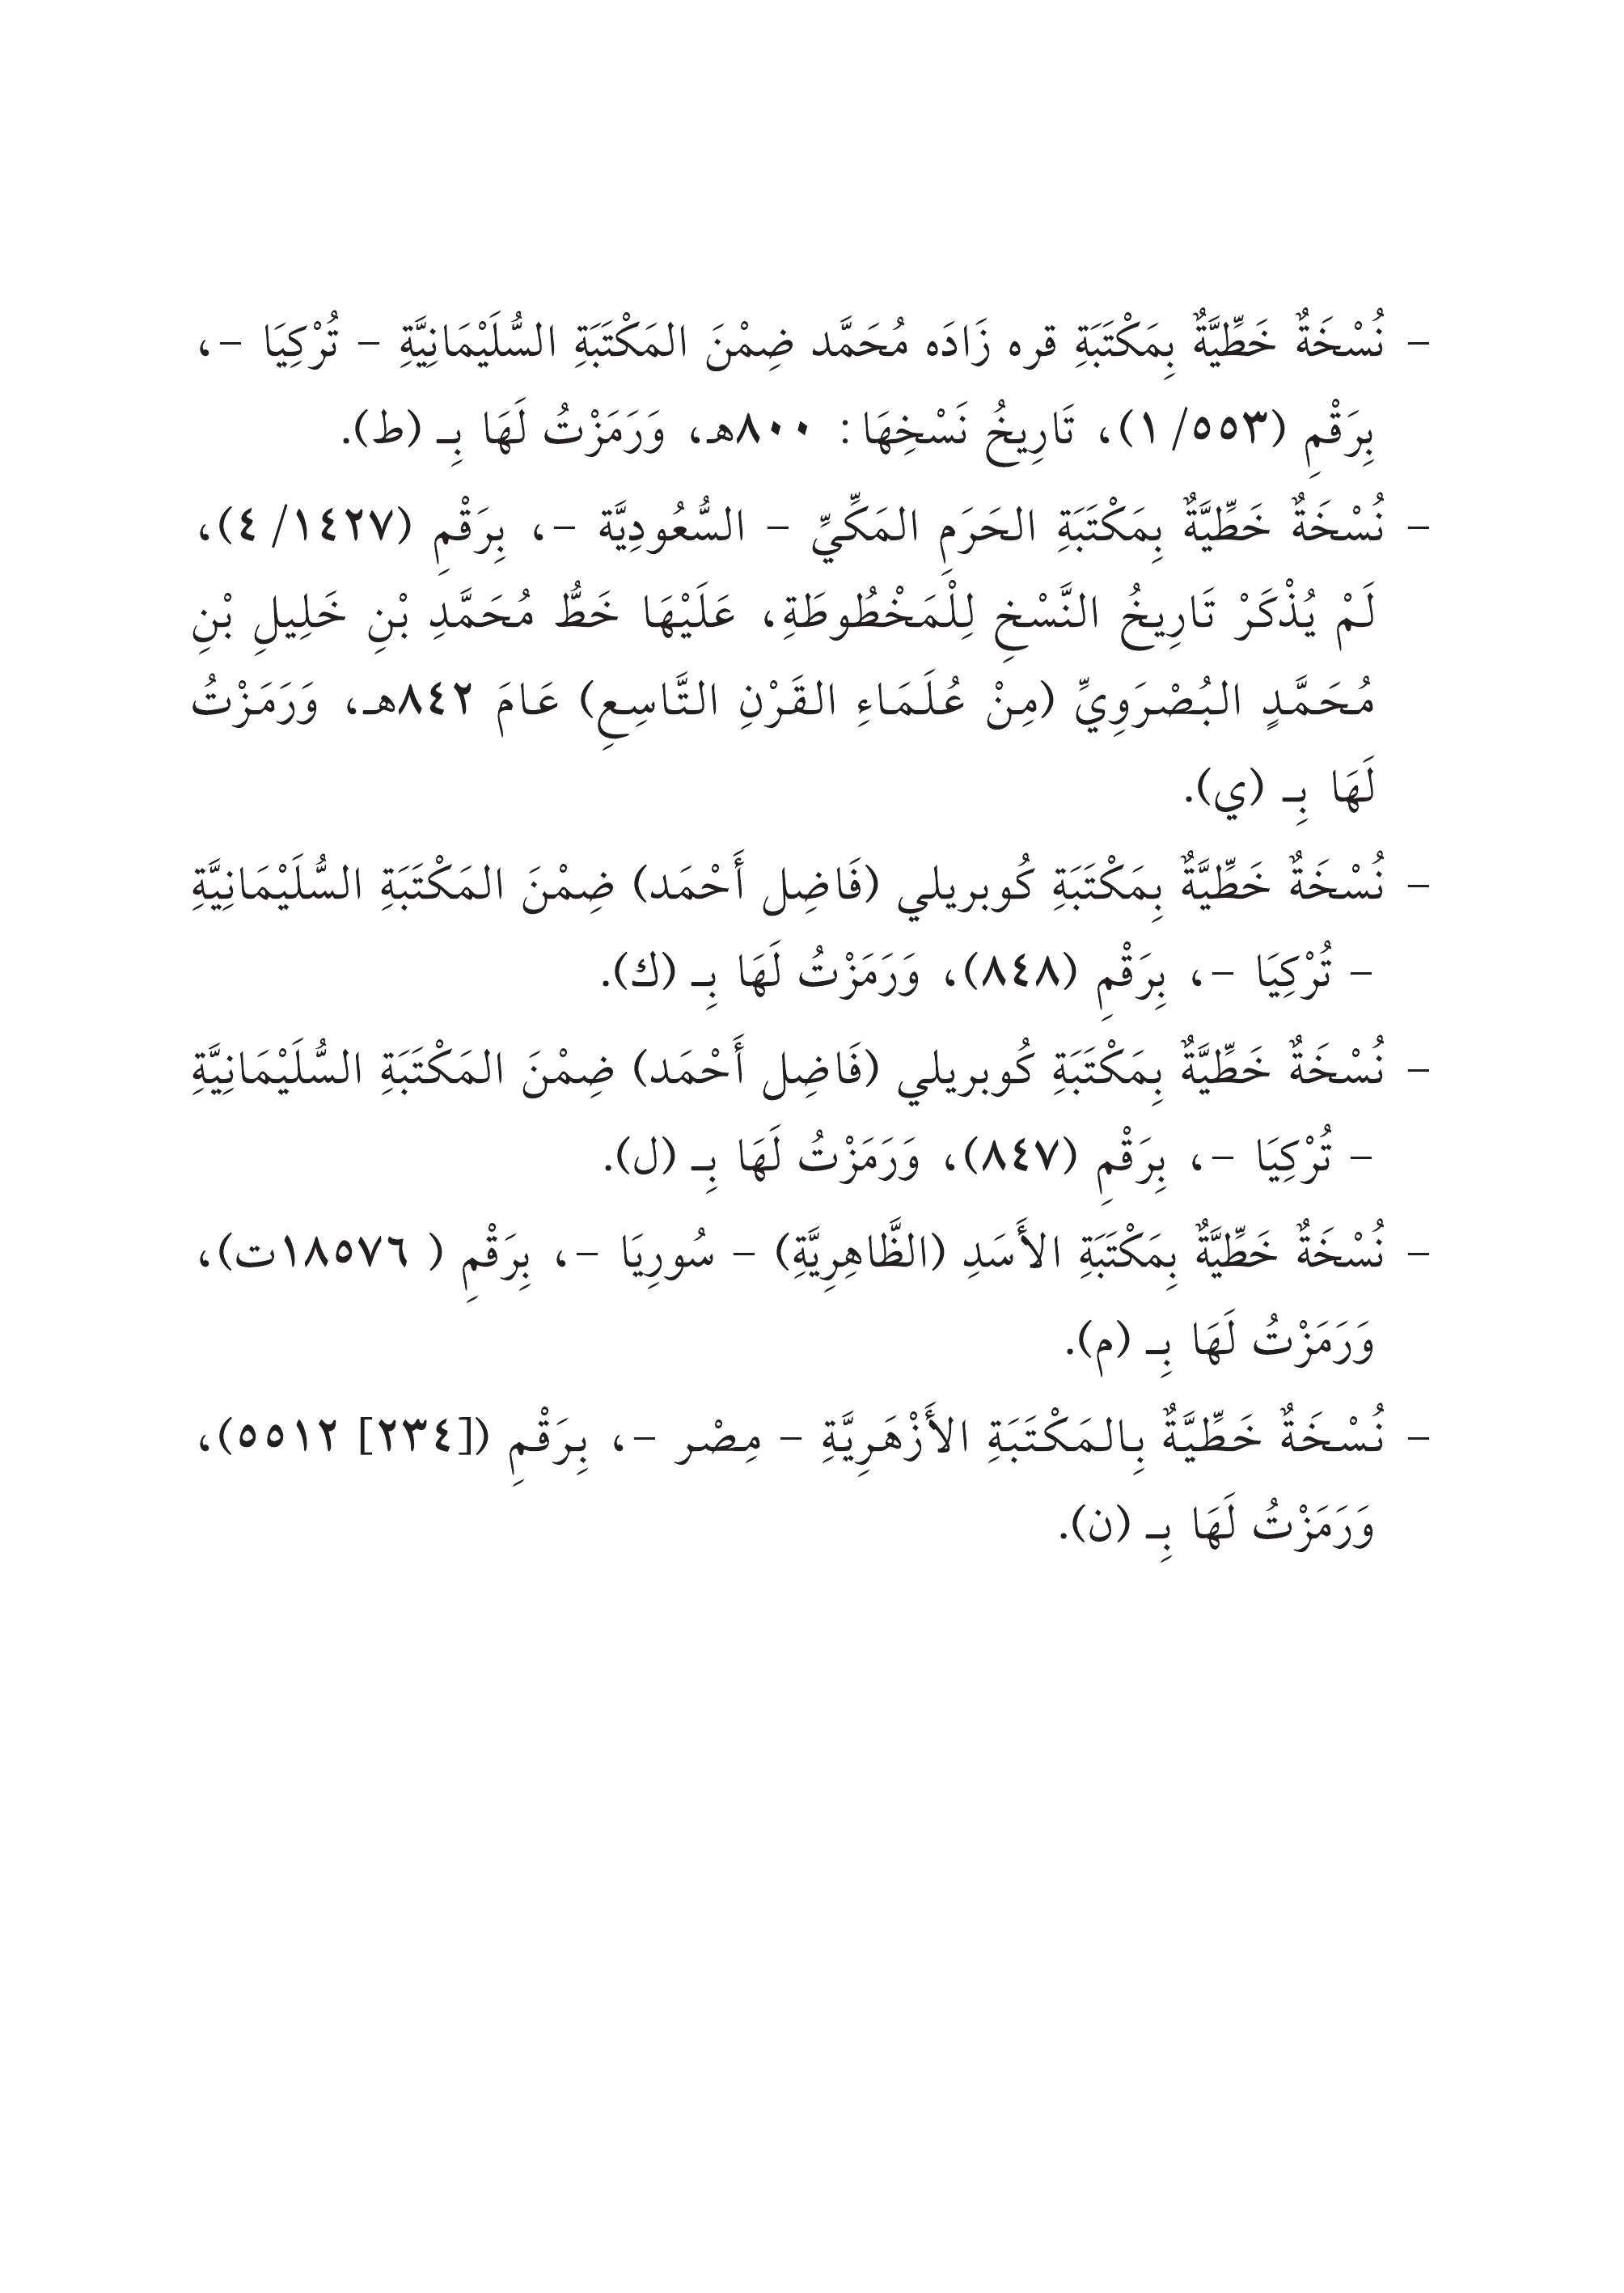 - نُسْخَةٌ خَطِّيَّةٌ بِمَكْتَبَةِ قره زَادَه مُحَمَّد ضِمْنَ المَكْتَبَةِ السُّلَيْمَانِيَّةِ - تُرْكِيَا -،
بِرَقْمِ (٥٥٣/ ١)، تَارِيخُ نَسْخِهَا: ٨٠٠هـ، وَرَمَزْتُ لَهَا بِـ (ط).
- نُسْخَةٌ خَطِّيَّةٌ بِمَكْتَبَةِ الحَرَمِ المَكِّيِّ - السُّعُودِيَّة -، بِرَقْمِ (١٤٢٧/ ٤)،
لَمْ يُذْكَرْ تَارِيخُ النَّسْخِ لِلْمَخْطُوطَةِ، عَلَيْهَا خَطُّ مُحَمَّدِ بْنِ خَلِيلِ بْنِ
مُحَمَّدٍ البُصْرَوِيِّ (مِنْ عُلَمَاءِ القَرْنِ التَّاسِعِ) عَامَ ٨٤٢هـ، وَرَمَزْتُ
لَهَا بِـ (ي).
- نُسْخَةٌ خَطِّيَّةٌ بِمَكْتَبَةِ كُوبريلي (فَاضِل أَحْمَد) ضِمْنَ المَكْتَبَةِ السُّلَيْمَانِيَّةِ
- تُرْكِيَا -، بِرَقْمِ (٨٤٨)، وَرَمَزْتُ لَهَا بِـ (ك).
- نُسْخَةٌ خَطِّيَّةٌ بِمَكْتَبَةِ كُوبريلي (فَاضِل أَحْمَد) ضِمْنَ المَكْتَبَةِ السُّلَيْمَانِيَّةِ
- تُرْكِيَا -، بِرَقْمِ (٨٤٧)، وَرَمَزْتُ لَهَا بِـ (ل).
- نُسْخَةٌ خَطِّيَّةٌ بِمَكْتَبَةِ الأَسَدِ (الظَّاهِرِيَّةِ) - سُورِيَا -، بِرَقْمِ ( ١٨٥٧٦ت)،
وَرَمَزْتُ لَهَا بِـ (م).
- نُسْخَةٌ خَطِّيَّةٌ بِالمَكْتَبَةِ الأَزْهَرِيَّةِ - مِصْر -، بِرَقْمِ ([٢٣٤] ٥٥١٢)،
وَرَمَزْتُ لَهَا بِـ (ن).